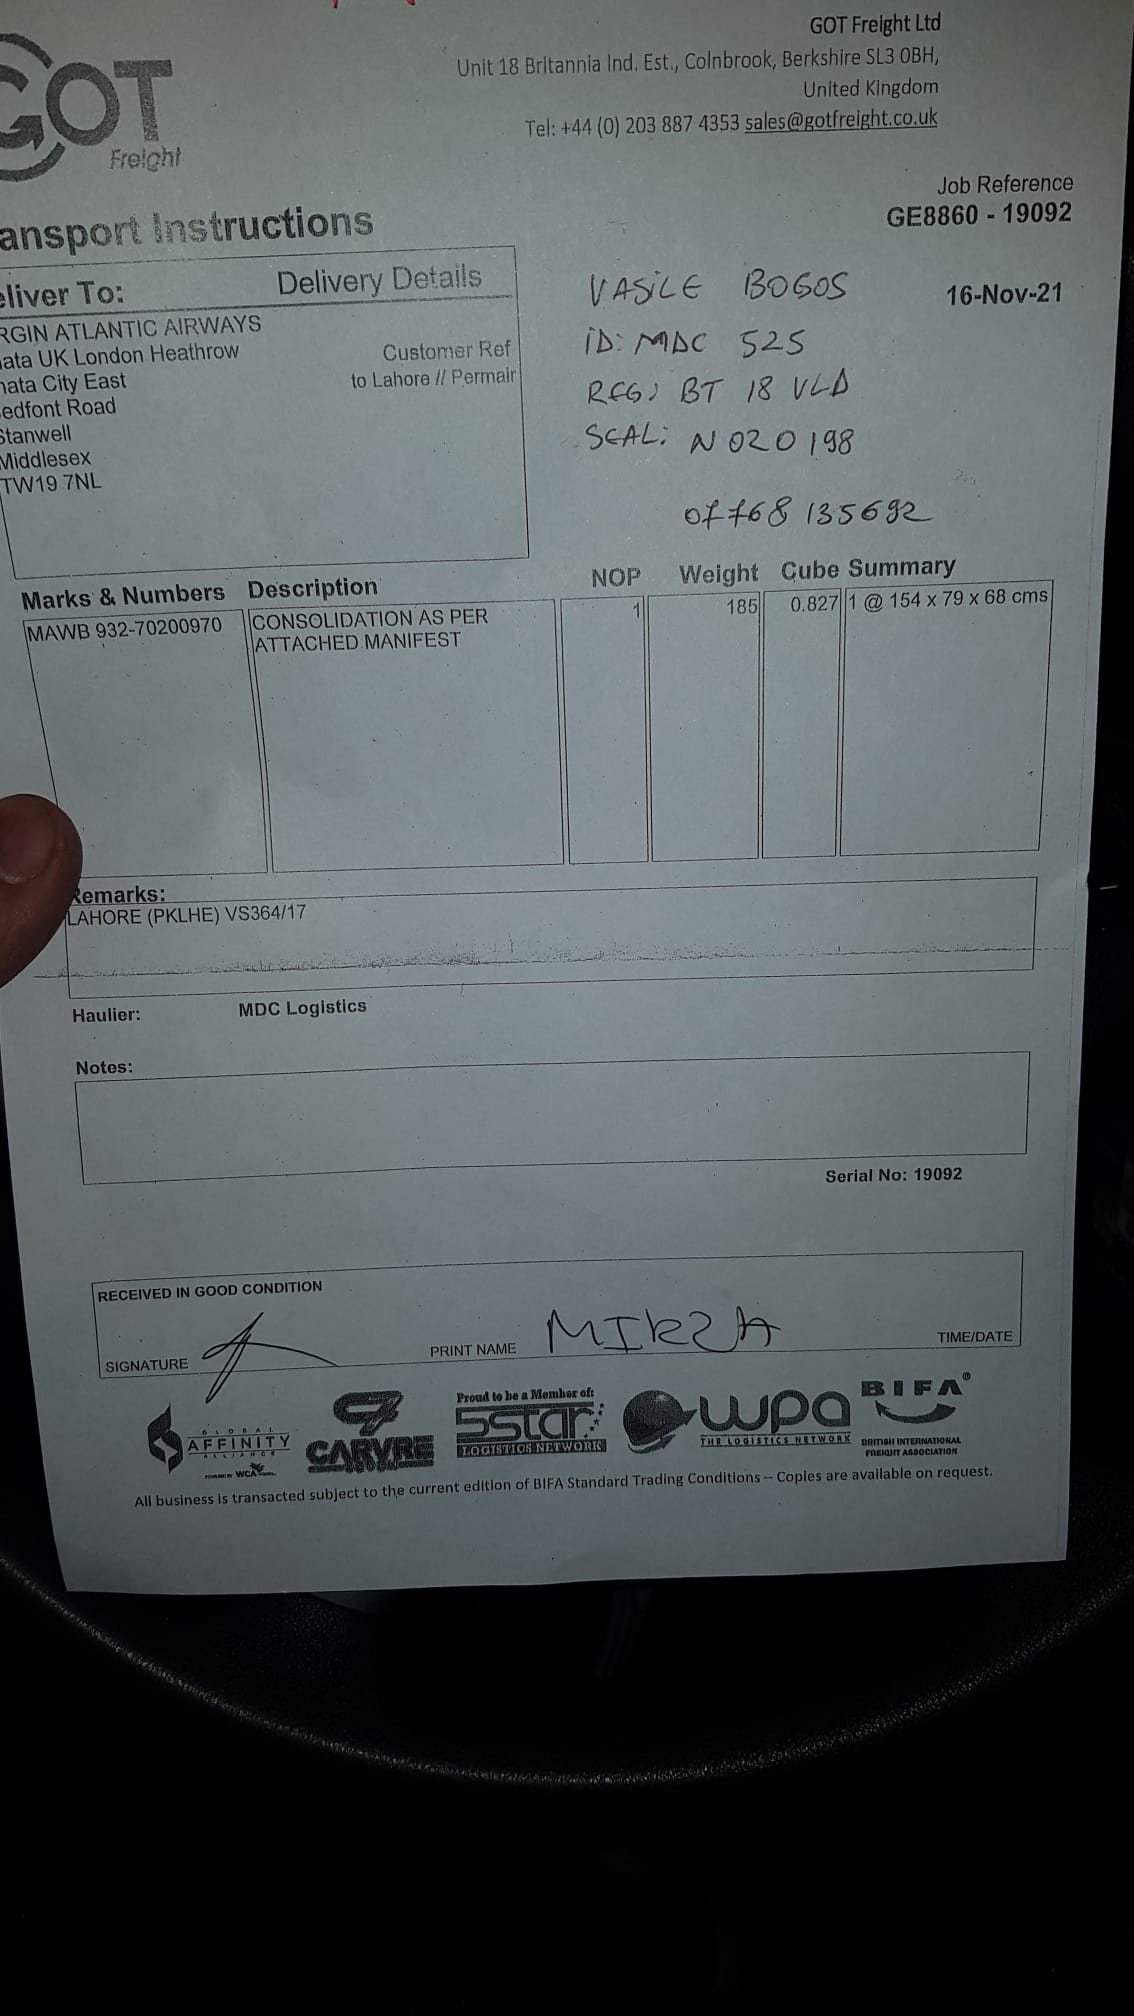 GOT
Freight
GOT Freight Ltd
Unit 18 Britannia Ind. Est., Colnbrook, Berkshire SL3 0BH,
United Kingdom
Tel: +44 (0) 203 887 4353 sales@gotfreight.co.uk
Job Reference
GE8860 - 19092
16-Nov-21
ansport Instructions
eliver To: Delivery Details
RGIN ATLANTIC AIRWAYS
nata UK London Heathrow
nata City East
edfont Road
Stanwell
Middlesex
TW19 7NL
Customer Ref
to Lahore // Permair
VASILE BOGOS
ID: MDC 525
REG: BT 18 VLD
SEAL: N020198
07768 135692
Marks & Numbers Description NOP Weight Cube Summary
MAWB 932-70200970 CONSOLIDATION AS PER 1 185 0.827 1 @ 154 x 79 x 68 cms
ATTACHED MANIFEST
Remarks:
LAHORE (PKLHE) VS364/17
Haulier: MDC Logistics
Notes:
Serial No: 19092
RECEIVED IN GOOD CONDITION
SIGNATURE PRINT NAME MIRZA TIME/DATE
GLOBAL
AFFINITY
ALLIANCE
POWERED BY WCA
CARVRE
Proud to be a Member of:
5star
LOGISTICS NETWORK
wpa
THE LOGISTICS NETWORK
BIFA®
BRITISH INTERNATIONAL
FREIGHT ASSOCIATION
All business is transacted subject to the current edition of BIFA Standard Trading Conditions – Copies are available on request.